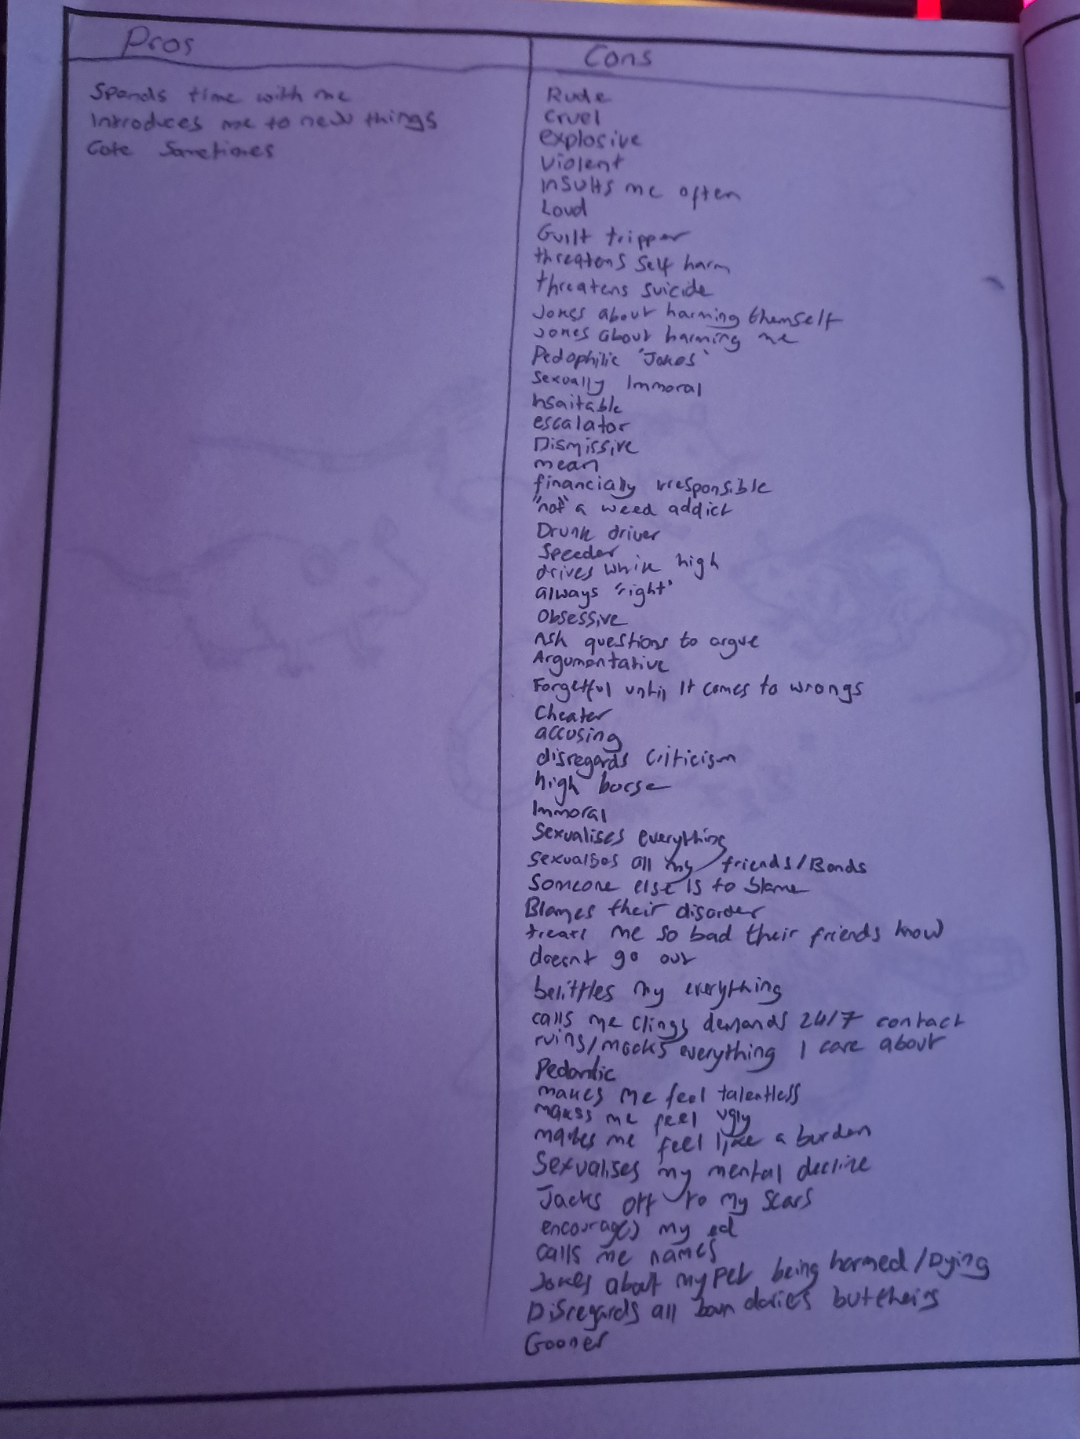 Pros
Spends time with me
Introduces me to new things
Cute Sometimes
Cons
Rude
cruel
explosive
violent
insults me often
Loud
Guilt tripper
threatens self harm
threatens suicide
Jokes about harming themself
Jokes about harming me
Pedophilic 'Jokes'
sexually Immoral
Insaitable
escalator
Dismissive
mean
financially irresponsible
"not" a weed addict
Drunk driver
Speeder
drives while high
always "right"
Obsessive
Ask questions to argue
Argumentative
Forgetful until It comes to wrongs
Cheater
accusing
disregards criticism
high horse
Immoral
Sexualises everything
sexualises all my friends/Bonds
Someone else is to blame
Blames their disorder
treats me so bad their friends know
doesnt go out
belittles my everything
calls me clingy demands 24/7 contact
ruins/mocks everything I care about
Pedantic
makes me feel talentless
makes me feel ugly
makes me feel like a burden
Sexualises my mental decline
Jacks off to my scars
encourages my ed
calls me names
Jokes about my pet being harmed/Dying
Disregards all boundaries but theirs
Gooner